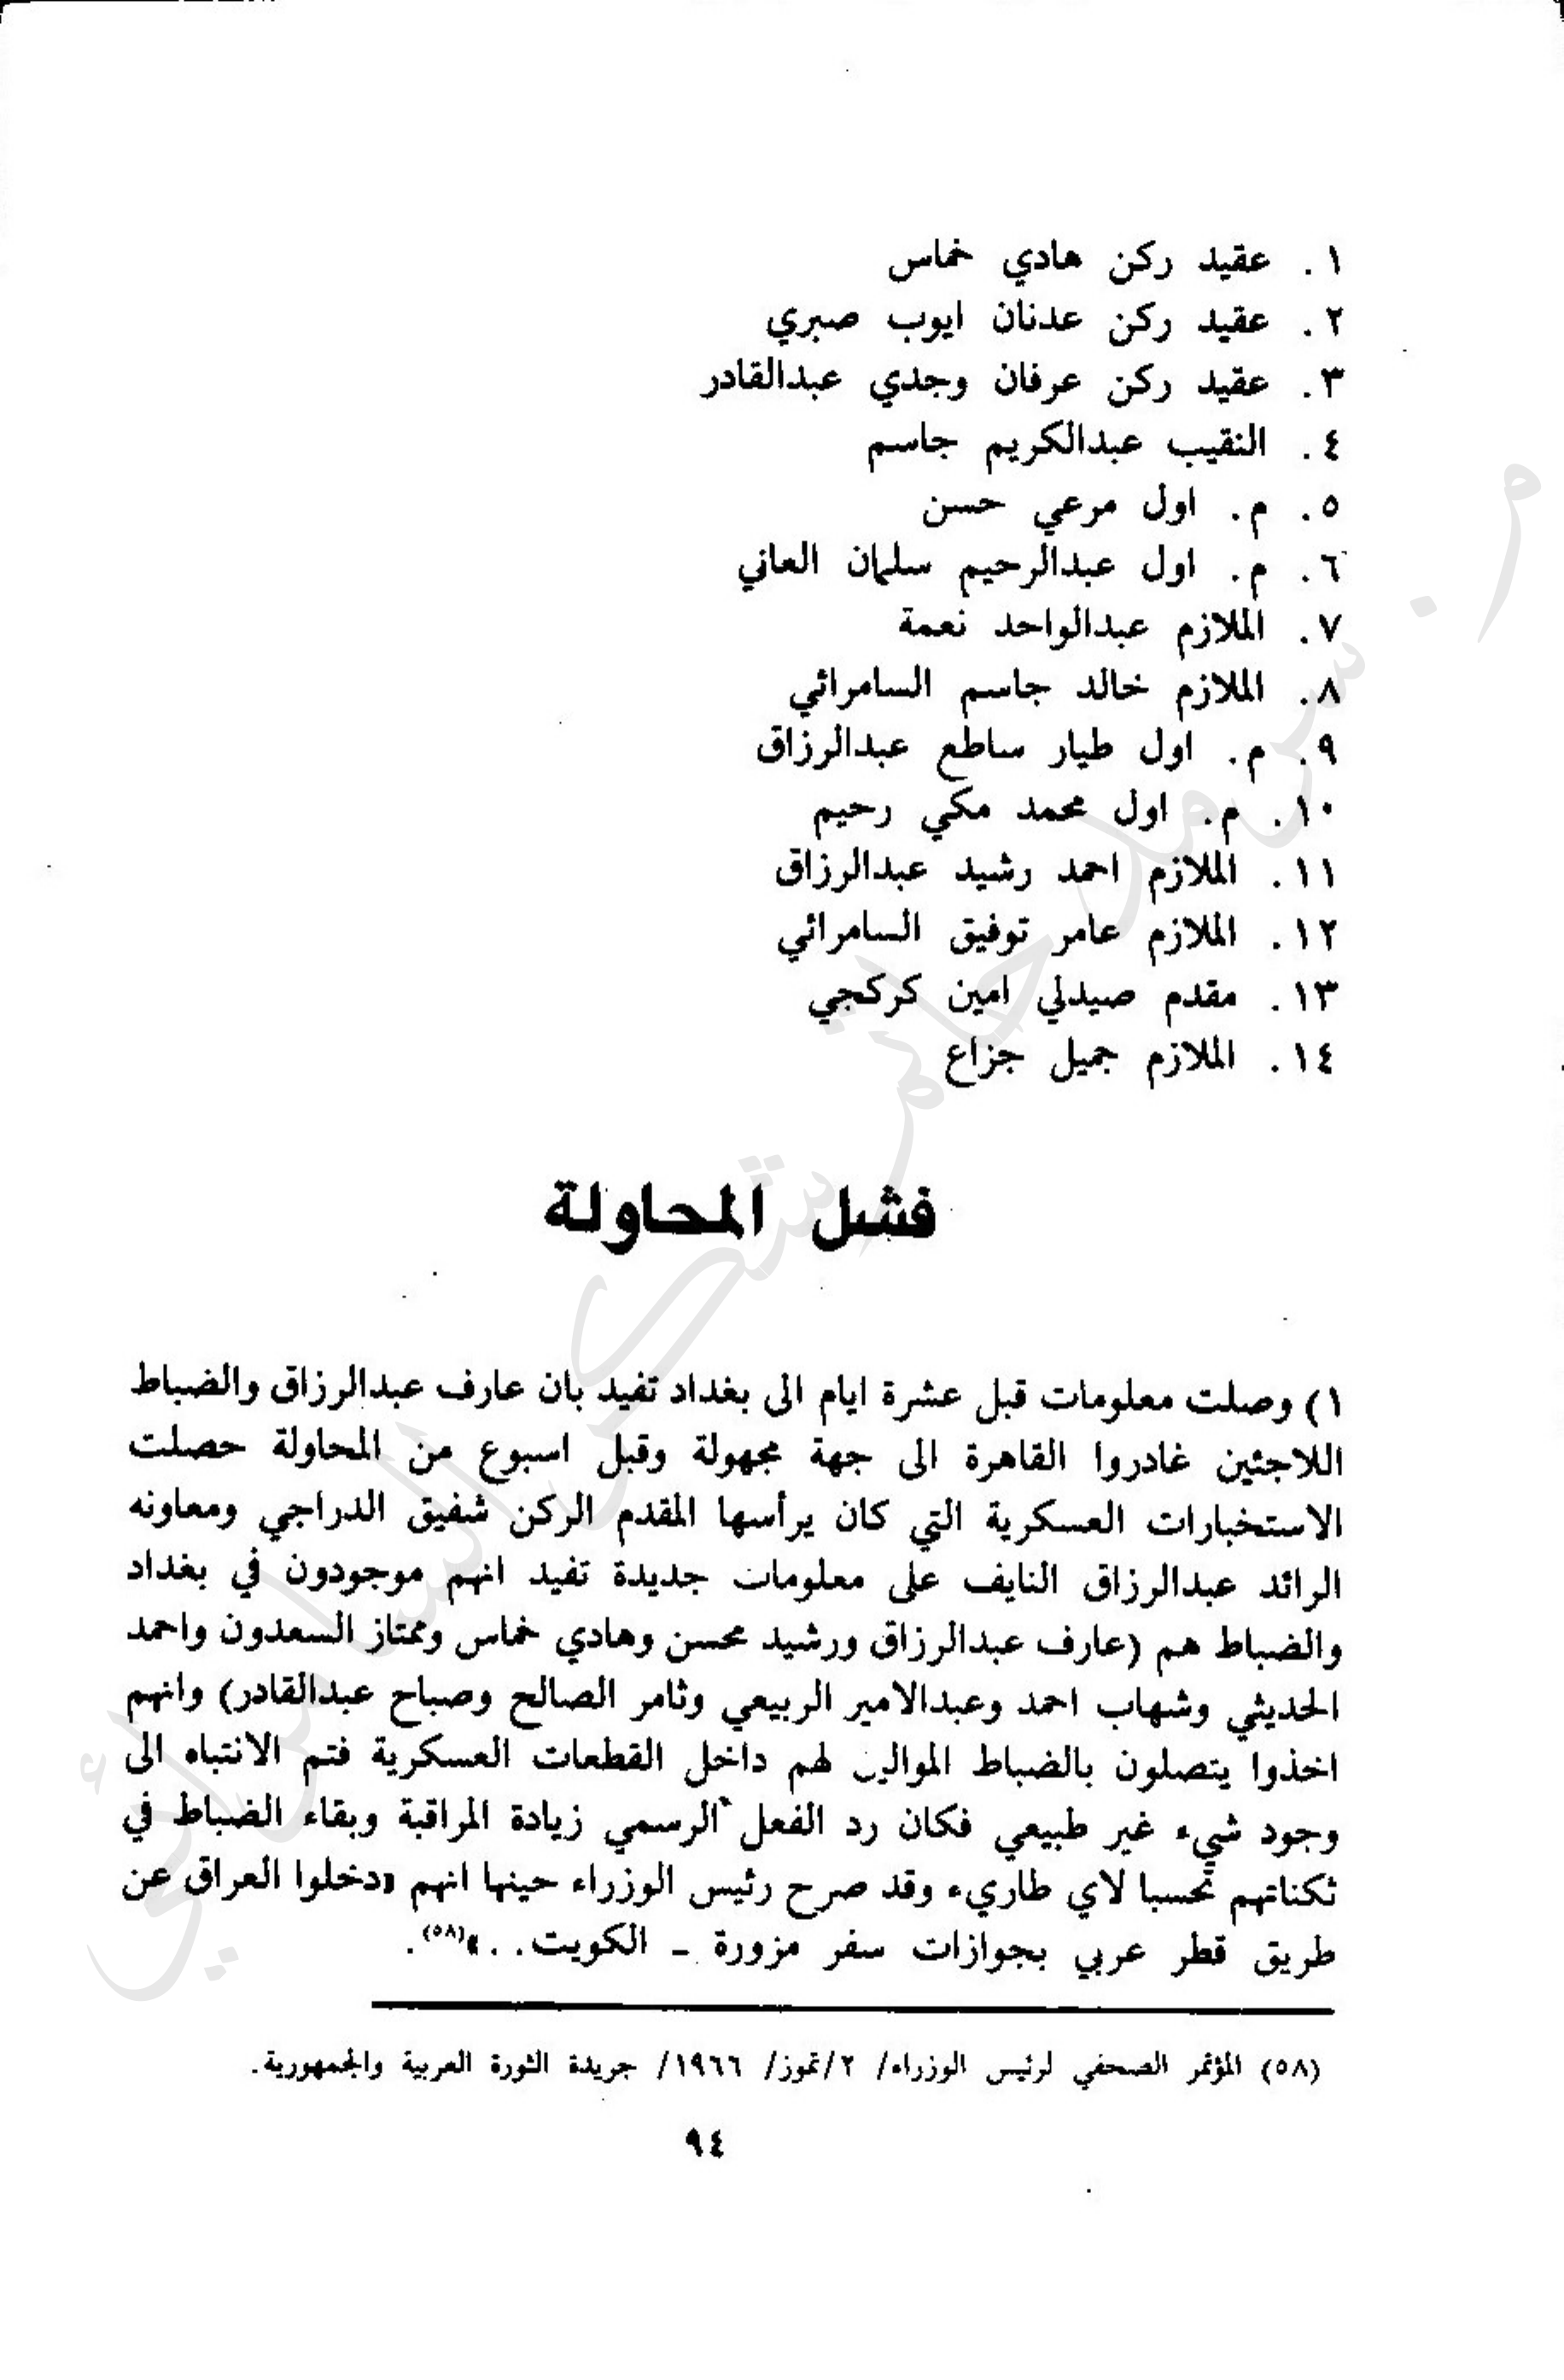 ١. عقيد ركن هادي خماس
٢. عقيد ركن عدنان ايوب صبري
٣. عقيد ركن عرفان وجدي عبدالقادر
٤. النقيب عبدالكريم جاسم
٥. م. اول مرعي حسن
٦. م. اول عبدالرحيم سلمان العاني
٧. الملازم عبدالواحد نعمة
٨. الملازم خالد جاسم السامرائي
٩. م. اول طيار ساطع عبدالرزاق
١٠. م. اول محمد مكي رحيم
١١. الملازم احمد رشيد عبدالرزاق
١٢. الملازم عامر توفيق السامرائي
١٣. مقدم صيدلي امين كركجي
١٤. الملازم جميل جزاع
فشل المحاولة
١) وصلت معلومات قبل عشرة ايام الى بغداد تفيد بان عارف عبدالرزاق والضباط
اللاجئين غادروا القاهرة الى جهة مجهولة وقبل اسبوع من المحاولة حصلت
الاستخبارات العسكرية التي كان يرأسها المقدم الركن شفيق الدراجي ومعاونه
الرائد عبدالرزاق النايف على معلومات جديدة تفيد انهم موجودون في بغداد
والضباط هم (عارف عبدالرزاق ورشيد محسن وهادي خماس وممتاز السعدون واحمد
الحديثي وشهاب احمد وعبدالامير الربيعي وثامر الصالح وصباح عبدالقادر) وانهم
اخذوا يتصلون بالضباط الموالين لهم داخل القطعات العسكرية فتم الانتباه الى
وجود شيء غير طبيعي فكان رد الفعل الرسمي زيادة المراقبة وبقاء الضباط في
ثكناتهم تحسبا لاي طاريء وقد صرح رئيس الوزراء حينها انهم «دخلوا العراق عن
طريق قطر عربي بجوازات سفر مزورة - الكويت..»(٥٨).
(٥٨) المؤتمر الصحفي لرئيس الوزراء/ ٢/تموز/ ١٩٦٦/ جريدة الثورة العربية والجمهورية.
٩٤
م. سرمد حاتم شكر السامرائي